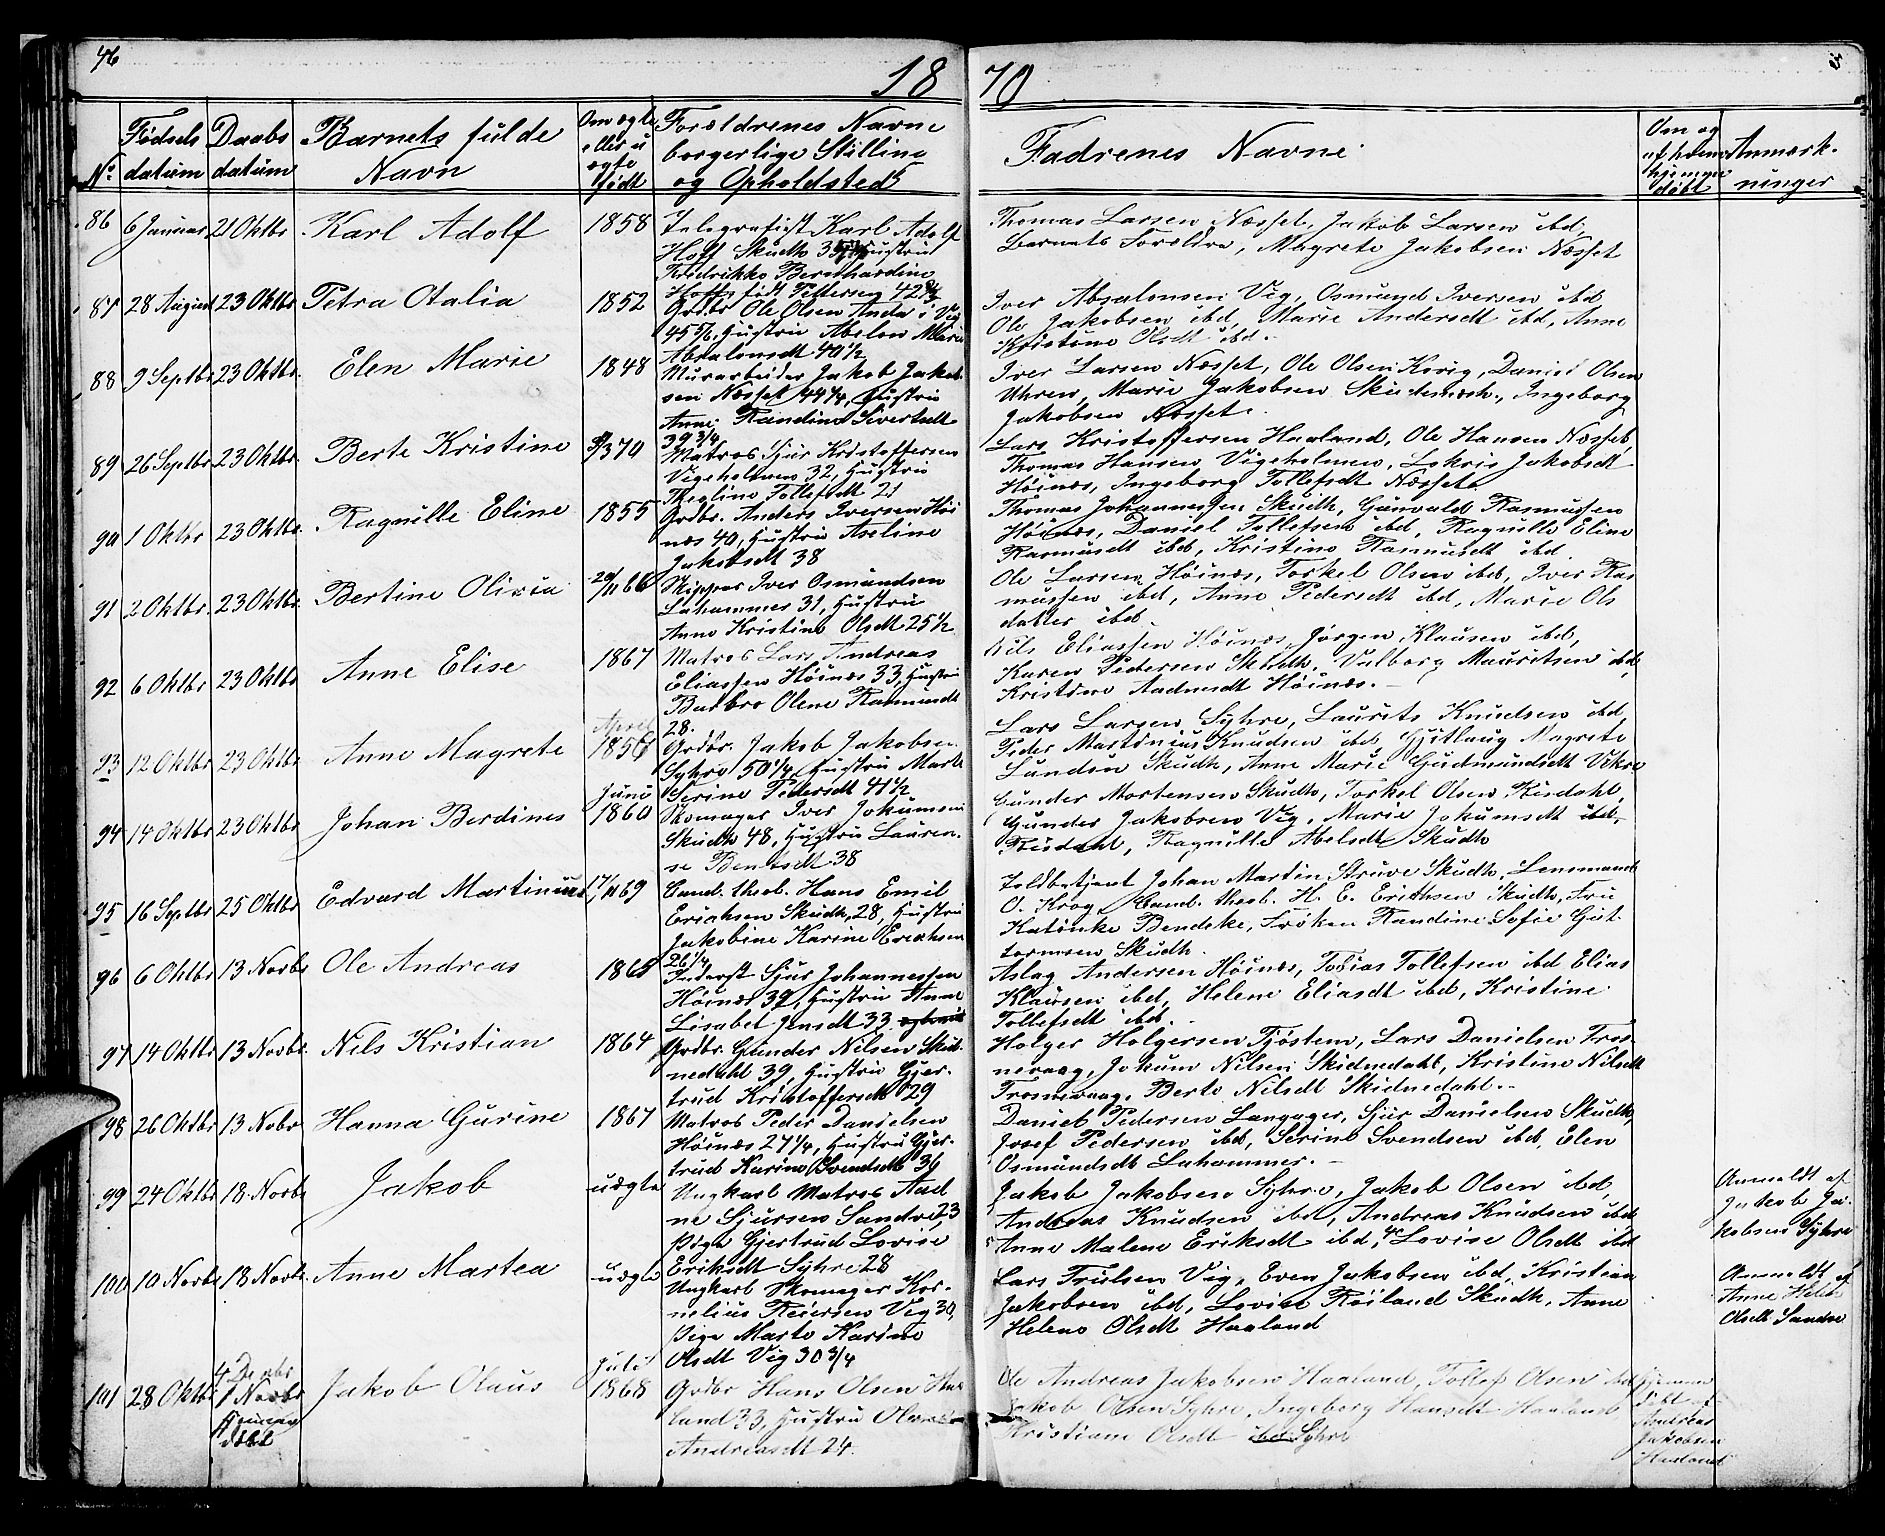 46
18 70
No Fødsels datum Daabs datum Barnets fulde Navn Om ægte eller u ægte født Forældrenes Navne borgerlige Stilling og Opholdsted Fadrenes Navne Om og af hvem hjemme døbt Anmærk- ninger
86 6 Januar 21 Oktbr Karl Adolf 1858 Telegrafist Karl Adolf
Hoff Skudh 35 Hustru
Fredrikke Bernthardine
Hoff født Pettersen 42
Thomas Larsen Næsset, Jakob Larsen ibd,
barnets Foreldre, Magrete Jakobsen Næsset
87 28 August 23 Oktbr Petra Otalia 1852 Grdbr Ole Olsen Anda i Vig
45 5/6, Hustru Abelon Marie
Absalonsdt 40 1/2
Iver Absalonsen Vig, Osmund Iversen ibd
Ole Jakobsen ibd, Marie Andersdt ibd, Anne
Kristine Olsdt ibd.
88 9 Septbr 23 Oktbr. Elen Marie 1848 Murarbeider Jakob Jakob-
sen Næsset 44 1/4, Hustru
Anne Randine Sivertsdt
39 3/4
Iver Larsen Næsset, Ole Olsen Kørig, Daniel Olsen
Uhren, Marie Jakobsen Skudenæsh., Ingeborg
Jakobsen Næsset.
89 26 Septbr 23 Oktbr. Berte Kristine 9/3 70 Matros Sjur Kristoffersen
Vigeholmen 32, Hustru
Theoline Tollefsdt 21
Lars Kristoffersen Haaland, Ole Hansen Næsset,
Thomas Hansen Vigeholmen, Jakobsdt
Høinæs, Ingeborg Tollefsdt Næsset
90 1 Oktbr 23 Oktbr Ragnille Eline 1855 Grdbr. Anders Iversen Høi
næs 40, Hustru Aseline
Jakobsdt 38
Thomas Johannessen Skudh, Gunvald Rasmussen
Høinæs, Daniel Tollefsen ibd, Ragnille Eline
Rasmusdt ibd, Kristine Rasmusdt ibd.
91 2 Oktbr. 23 Oktbr. Bertine Olivia 20/11 66 Skipper Iver Osmundsen
Lahammer 31, Hustru
Anne Kristine Olsdt 25 1/2
Ole Larsen Høinæs, Torkel Olsen ibd, Iver Ras
mussen ibd, Anne Pedersdt ibd, Marie Ols
datter ibd.
92 6 Oktbr 23 Oktbr Anne Elise 1867 Matros Lars Andreas
Eliassen Høinæs 33, Hustru
Barbro Olene Rasmusdt
28.
Nils Eliassen Høinæs, Jørgen Klausen ibd,
Karen Pedersen Skudh, Valborg Mauritsen ibd,
Kristine Aadnesdt Høinæs.
93 12 Oktbr 23 Oktbr Anne Magrete April 1856 Grdbr. Jakob Jakobsen
Syhre 50 1/4, Hustru Marte
Serine Pedersdt 41 1/2
Lars Larsen Syhre, Laurits Knudsen ibd,
Peder Martinius Knudsen ibd, Gjitlaug Magrete
Lundsen Skudh, Anne Marie Gudmundsdt Vikre
94 14 Oktbr 23 Oktbr Johan Berdines Juni 1860 Skomager Iver Jokumsen
Skudh 48, Hustru Lauren-
se Bentsdt 38
Gunder Mortensen Skudh, Torkel Olsen Risdahl,
Gunder Jakobsen Vig, Marie Jokumsdt ibd,
Risdahl, Ragnille Abelsdt Skudh
95 16 Septbr 25 Oktbr Edvard Martinius 17/11 69 Cand. theol. Hans Emil
Erichsen Skudh, 28, Hustru
Jakobine Karine Erichsen
26 1/4
Toldbetjent Johan Martin Struve Skudh, Lensmand
O. Krog, Cand. theol. H. E. Erichsen Skudh, Fru
Katinke Bendeke, Frøken Randine Sofie Gut-
tormsen Skudh
96 6 Oktbr 13 Novbr Ole Andreas 1865 Sjur Johannessen
Høinæs 39, Hustru Anne
Lisabet Jensdt 33
Aslag Andersen Høinæs, Tobias Tollefsen ibd, Elias
Klausen ibd, Helene Eliasdt ibd, Kristine
Tollefsdt ibd.
97 14 Oktbr 13 Novbr. Nils Kristian 1864 Grdbr. Gunder Nilsen Skid-
nedahl 39, Hustru Gjer-
trud Kristoffersdt 29
Holger Holgersen Tjøstem, Lars Danielsen Fros-
nevaag, Jokum Nilsen Skidnedahl, Kristine Nilsdt
Frosnevaag, Berte Nilsdt Skidnedahl.
98 26 Oktbr 13 Nobr Hanna Gurine 1867 Matros Peder Danielsen
Høinæs 27 1/4, Hustru Gjer-
trud Karine Svendsdt 36
Daniel Pedersen Langager, Sjur Danielsen Skudh,
Josef Pedersen ibd, Serine Svendsen ibd, Elen
Osmundsdt Lahammer.
99 24 Oktbr 18 Novbr Jakob uægte Ungkarl Matros Aad
ne Sjursen Sandve 23
Pige Gjertrud Lovise
Eriksdt Syhre 28
Jakob Jakobsen Syhre, Jakob Olsen ibd,
Andreas Knudsen ibd, Andreas Knudsen ibd
Anne Malene Eriksdt ibd, Lovise Olsdt ibd
Anmeldt af
Jakob Ja-
kobsen Syhre
100 10 Novbr 18 Novbr. Anne Martea uægte Ungkarl Skomager Kor-
nelius Reiersen Vig 30,
Pige Marte Karine
Olsdt Vig 30 3/4
Lars Trulsen Vig, Even Jakobsen ibd, Kristian
Jakobsen ibd, Lovise Røiland Skudh, Anne
Helene Olsdt Haaland
Anmeldt af
Anne Helene
Olsdt Sandve
101 28 Oktbr 4 Decbr 1 Novbr hjemme døbt Jakob Olaus Juli 1868 Grdbr Hans Olsen Haa
land 33, Hustru Olene
Andreasdt 24.
Ole Andreas Jakobsen Haaland, Tollef Olsen ibd
Jakob Olsen Syhre, Ingeborg Hansdt Haaland,
Kristiane Olsdt ibd Syhre
hjemme
døbt af
Andreas
Jakobsen
Haaland